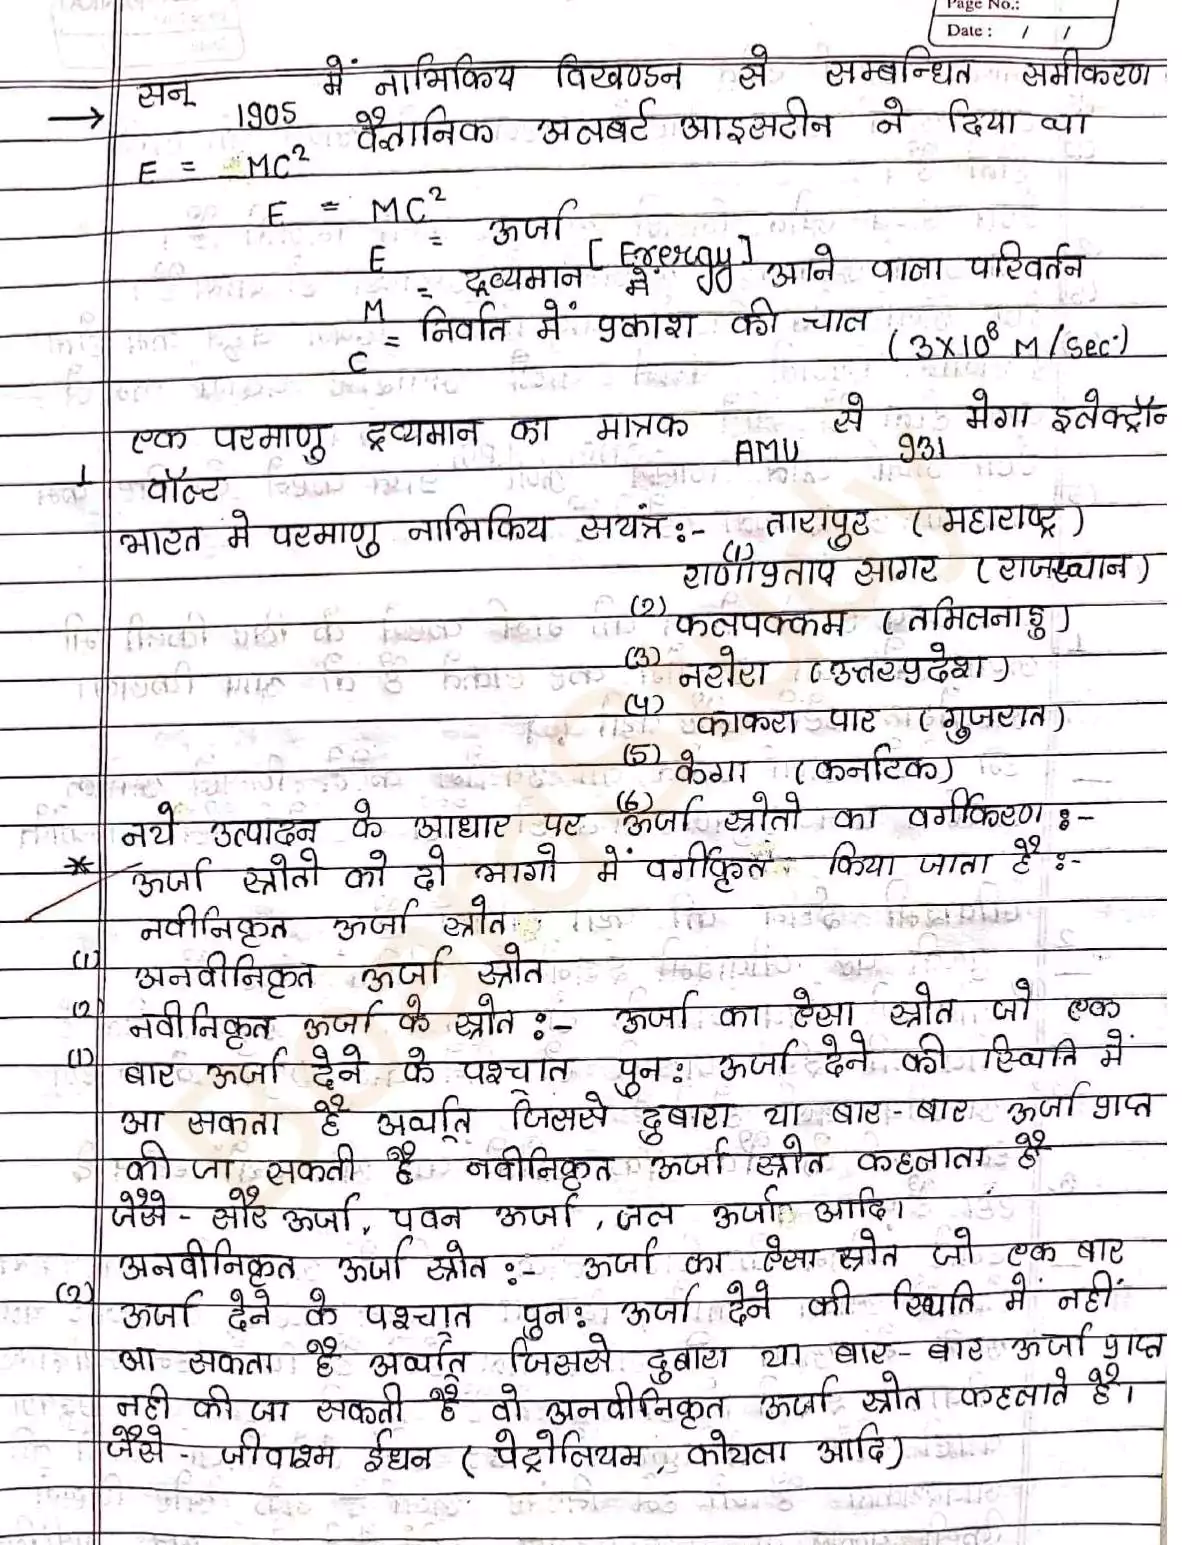 Page No.:
Date : / /
सन् 1905 में नाभिकिय विखण्डन से सम्बन्धित समीकरण
→ E = MC² वैज्ञानिक अलबर्ट आइसटीन ने दिया था
E = MC²
E = ऊर्जा [Energy]
M = द्रव्यमान में आने वाला परिवर्तन
C = निर्वात में प्रकाश की चाल (3×10⁸ M/sec.)
एक परमाणु द्रव्यमान का मात्रक AMU से 931 मेगा इलेक्ट्रॉन
वॉल्ट
भारत मे परमाणु नाभिकिय सयंत्र :- (1) तारापुर (महाराष्ट्र)
(2) राणाप्रताप सागर (राजस्थान)
(3) कलपक्कम (तमिलनाडु)
(4) नरोरा (उत्तरप्रदेश)
(5) काकरा पार (गुजरात)
(6) केगा (कर्नाटिक)
* नये उत्पादन के आधार पर ऊर्जा स्त्रोतो का वर्गीकरण :-
ऊर्जा स्त्रोतो को दो भागो में वर्गीकृत किया जाता है :-
(1) नवीनिकृत ऊर्जा स्त्रोत
(2) अनवीनिकृत ऊर्जा स्त्रोत
(1) नवीनिकृत ऊर्जा के स्त्रोत :- ऊर्जा का ऐसा स्त्रोत जो एक
बार ऊर्जा देने के पश्चात् पुन: ऊर्जा देने की स्थिति में
आ सकता है अर्थात् जिससे दुबारा या बार-बार ऊर्जा प्राप्त
की जा सकती है नवीनिकृत ऊर्जा स्त्रोत कहलाता है
जैसे - सौर ऊर्जा, पवन ऊर्जा, जल ऊर्जा आदि।
(2) अनवीनिकृत ऊर्जा स्त्रोत :- ऊर्जा का ऐसा स्त्रोत जो एक बार
ऊर्जा देने के पश्चात् पुन: ऊर्जा देने की स्थिति में नहीं
आ सकता है अर्थात् जिससे दुबारा या बार-बार ऊर्जा प्राप्त
नही की जा सकती है वो अनवीनिकृत ऊर्जा स्त्रोत कहलाते है।
जैसे - जीवाश्म ईधन (पेट्रोलियम, कोयला आदि)